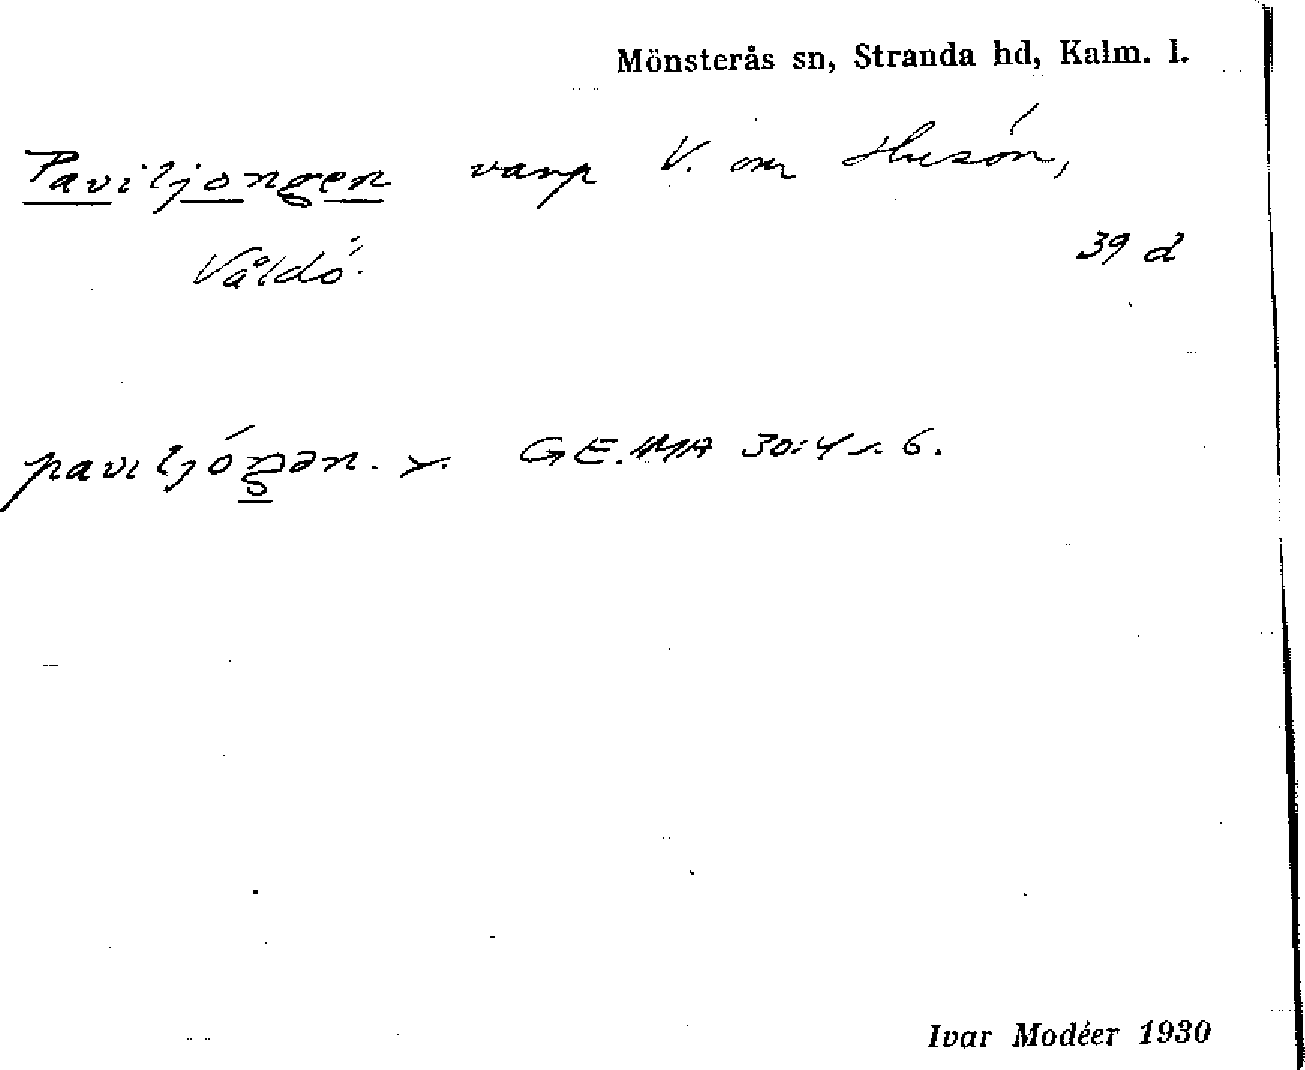 Mönsterås sn, Stranda hd, Kalm. l.
Paviljongen varp V. om Husön,
Våldö.
39 d
paviljóŋən. y. GE.MA 30:4 s. 6.
Ivar Modéer 1930